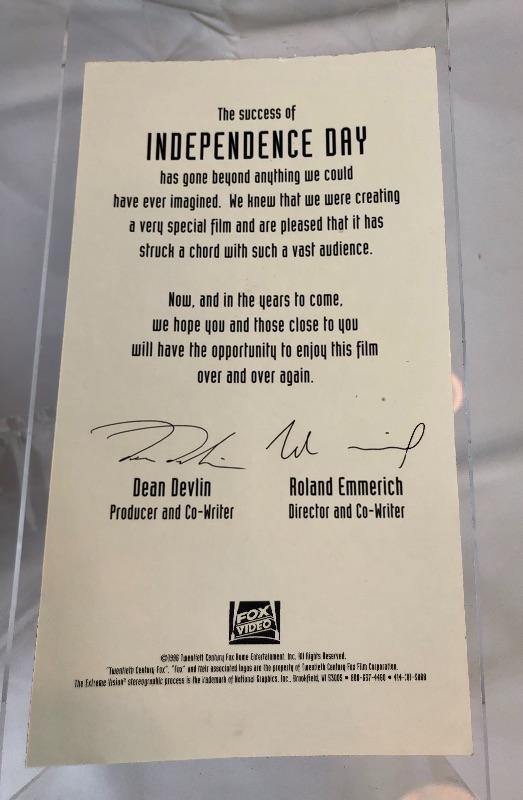 The success of
INDEPENDENCE DAY
has gone beyond anything we could
have ever imagined. We knew that we were creating
a very special film and are pleased that it has
struck a chord with such a vast audience.
Now, and in the years to come,
we hope you and those close to you
will have the opportunity to enjoy this film
over and over again.
Dean Devlin Roland Emmerich
Producer and Co-Writer Director and Co-Writer
FOX
VIDEO
©1996 Twentieth Century Fox Home Entertainment, Inc. All Rights Reserved.
"Twentieth Century Fox", "Fox" and their associated logos are the property of Twentieth Century Fox Film Corporation.
The Extreme Vision® stereographic process is the trademark of National Graphics, Inc., Brookfield, WI 53005 •